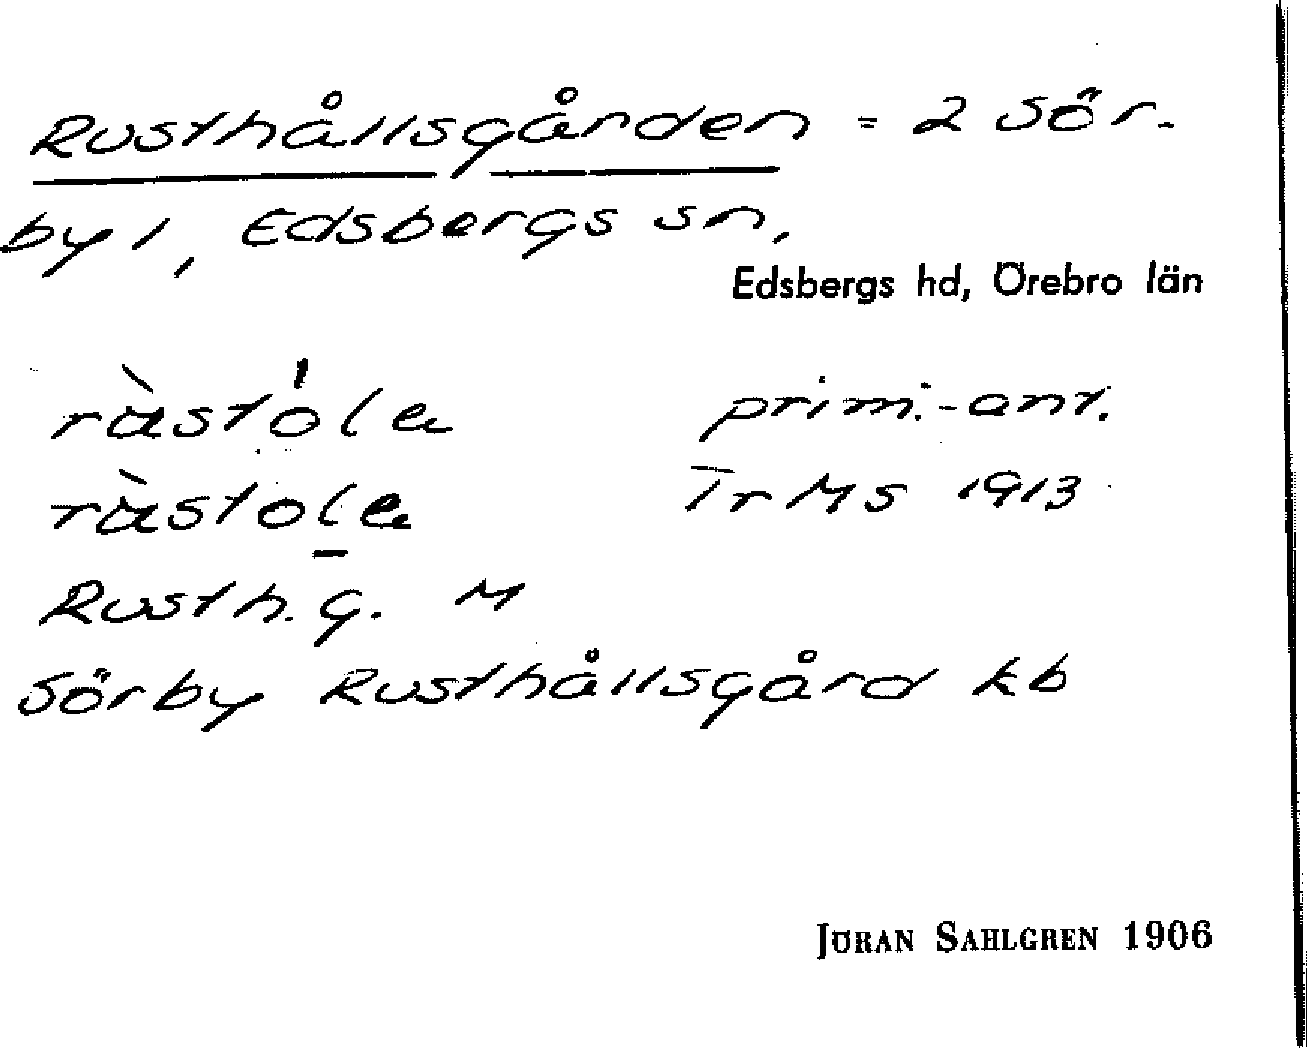 Rusthållsgården = 2 Sör-
by 1, Edsbergs sn,
Edsbergs hd, Örebro län
prim.-ant.
Tr MS 1913
Rusth. g. M
Sörby Rusthållsgård kb
JÖRAN SAHLGREN 1906